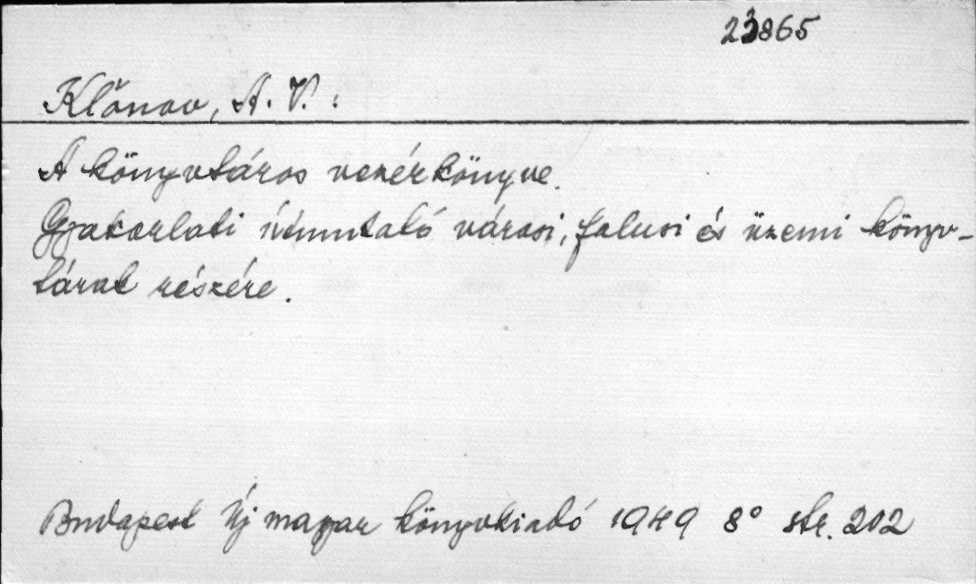 23865
Klěnov, A. V. :
A könyvtáros vezérkönyve.
Gyakorlati útmutató városi, falusi és üzemi könyv-
tárak részére.
Budapest Új magyar könyvkiadó 1949 8° str. 202